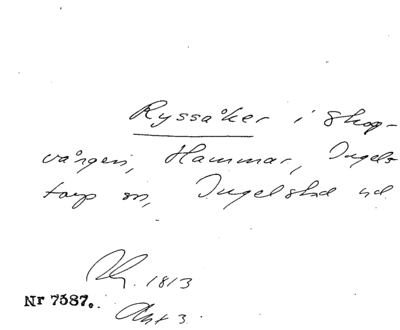 Ryssåker i Skog-
vången, Hammar, Ingels-
torp sn, Ingelstad hd
1813
Nr 7587.
Akt 3